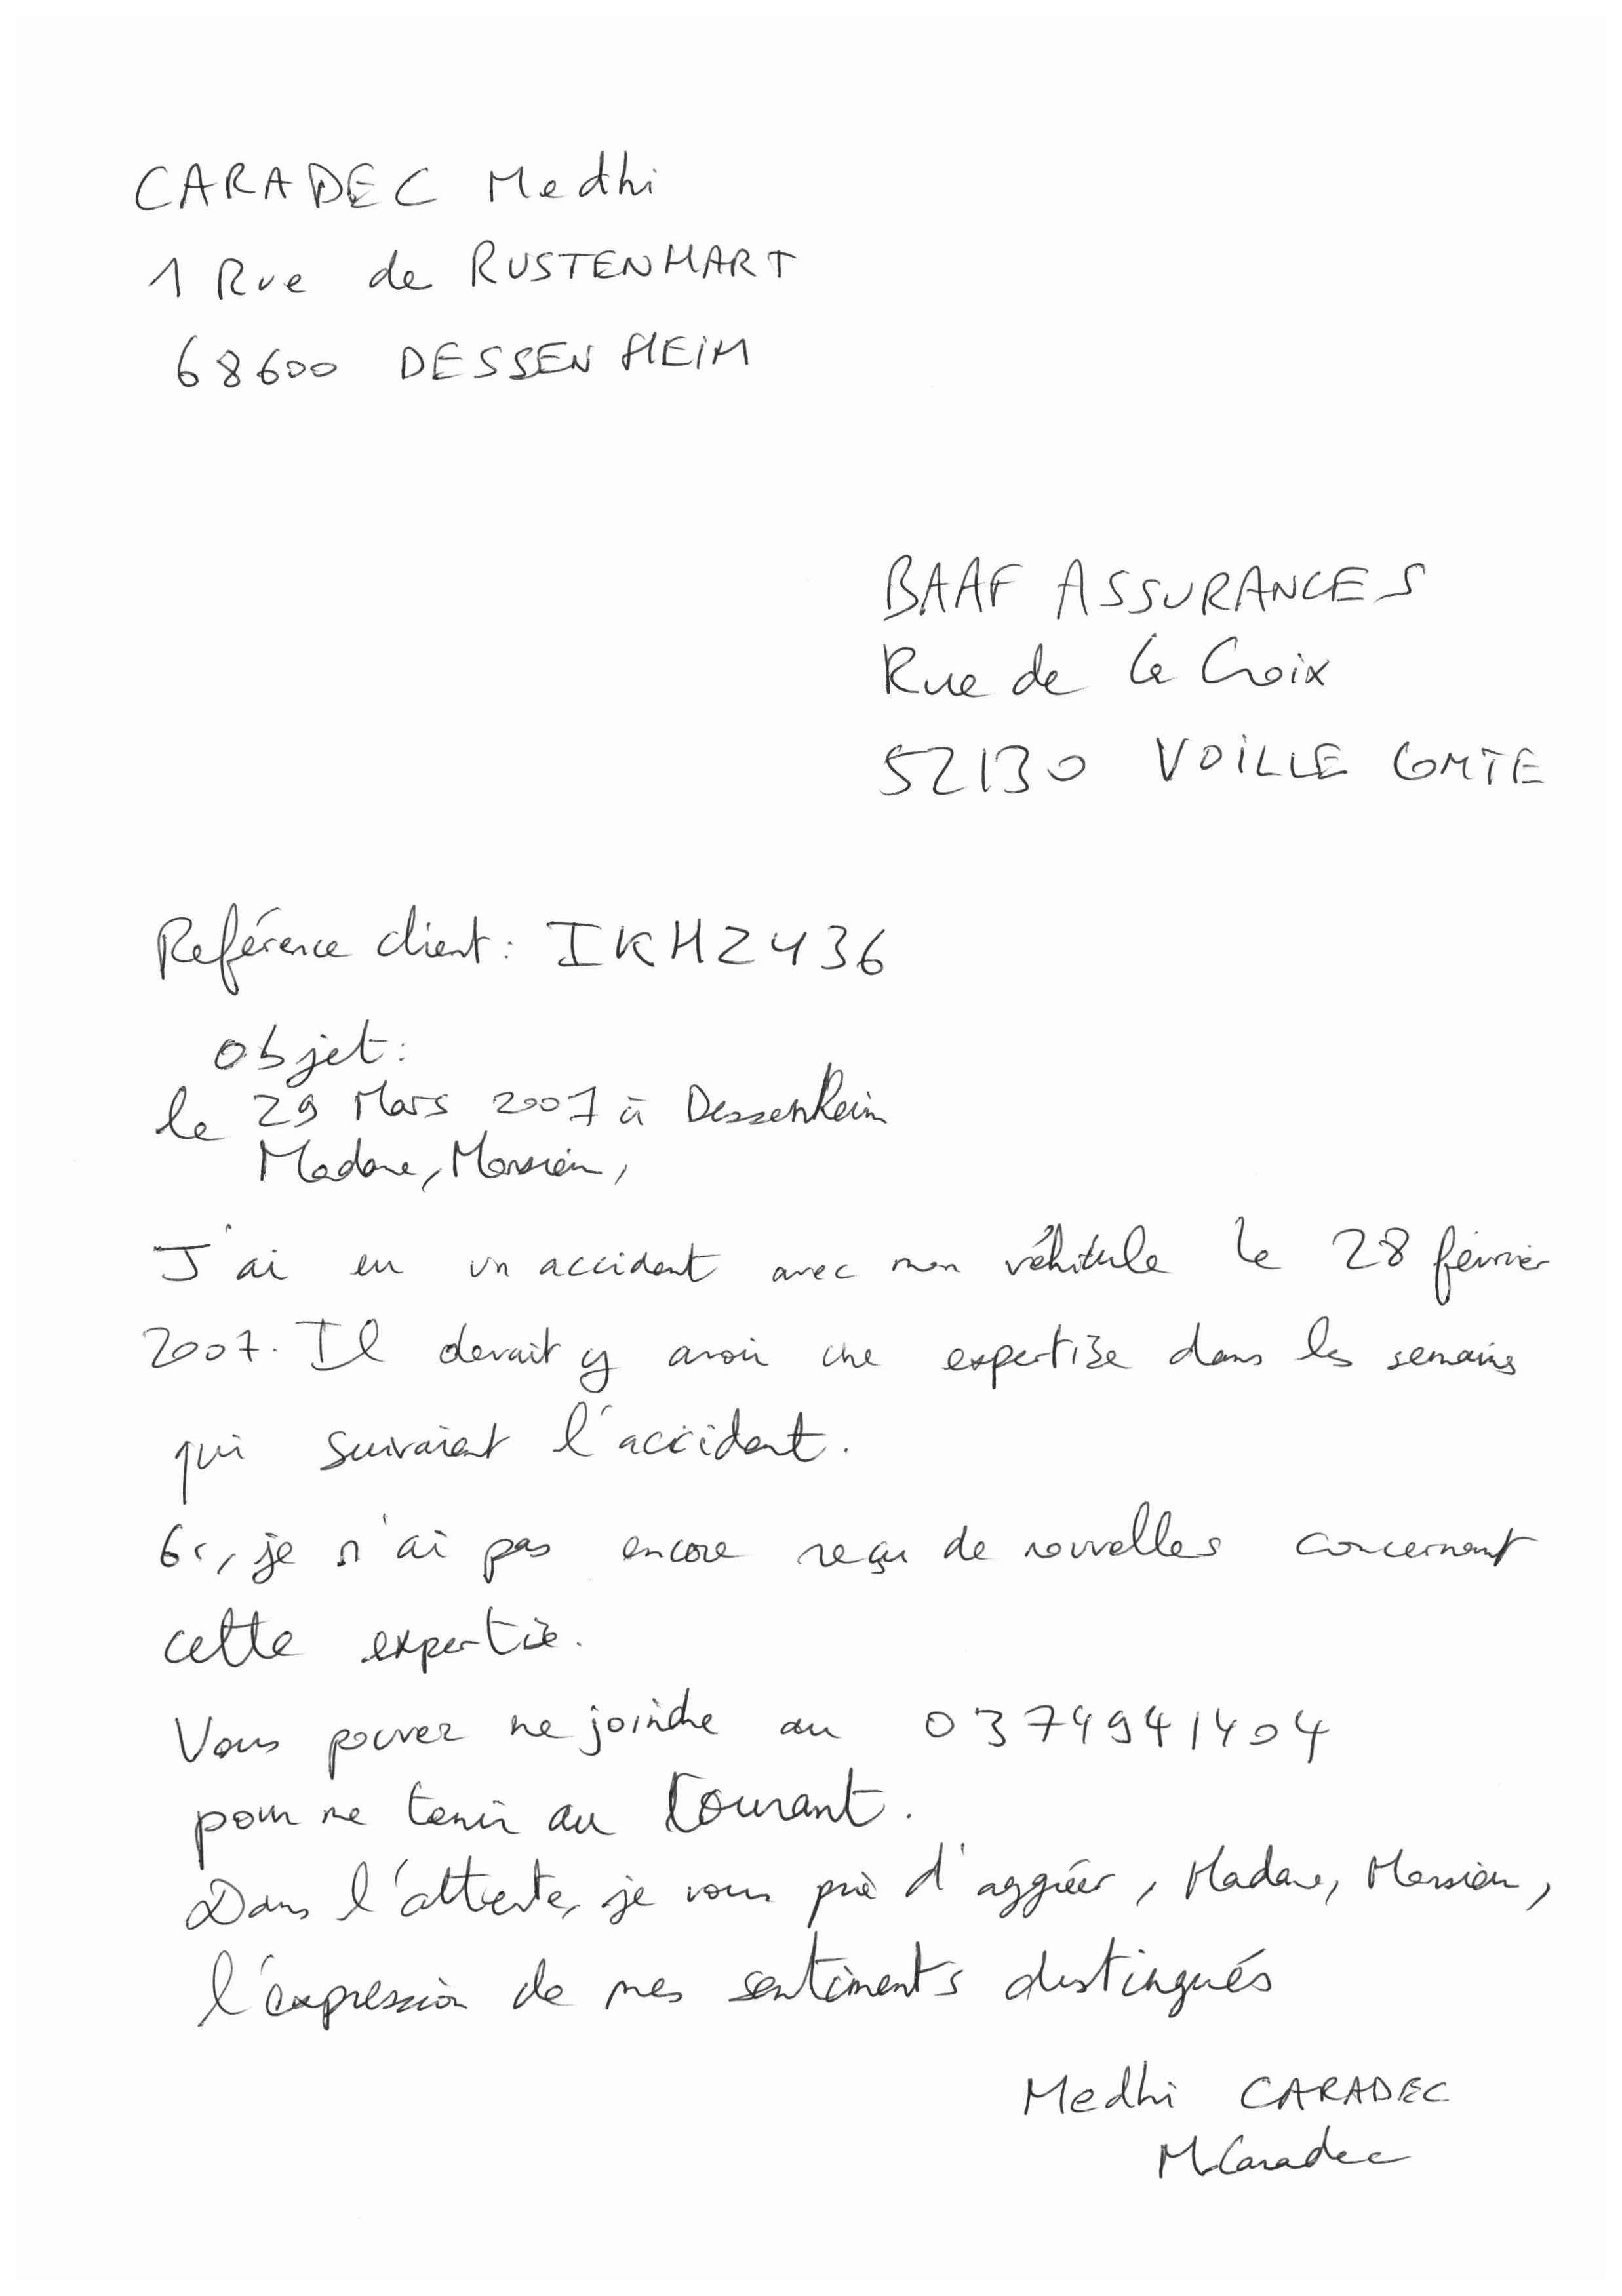 CARADEC Medhi
1 Rue de RUSTENHART
68600 DESSENHEIM
BAAF ASSURANCES
Rue de la Croix
52130 VOILLECOMTE
Reférence client : IKHZ436
Objet :
le 29 Mars 2007 à Dessenheim
Madame, Monsieur,
J'ai eu un accident avec mon véhicule le 28 février
2007. Il devait y avoir une expertise dans les semaines
qui suivaient l'accident.
Or, je n'ai pas encore reçu de nouvelles concernant
cette expertise.
Vous pouvez me joindre au 0379941404
pour me tenir au courant.
Dans l'attente, je vous prie d'aggréer, Madame, Monsieur,
l'expression de mes sentiments distingués
Medhi CARADEC
M.Caradec